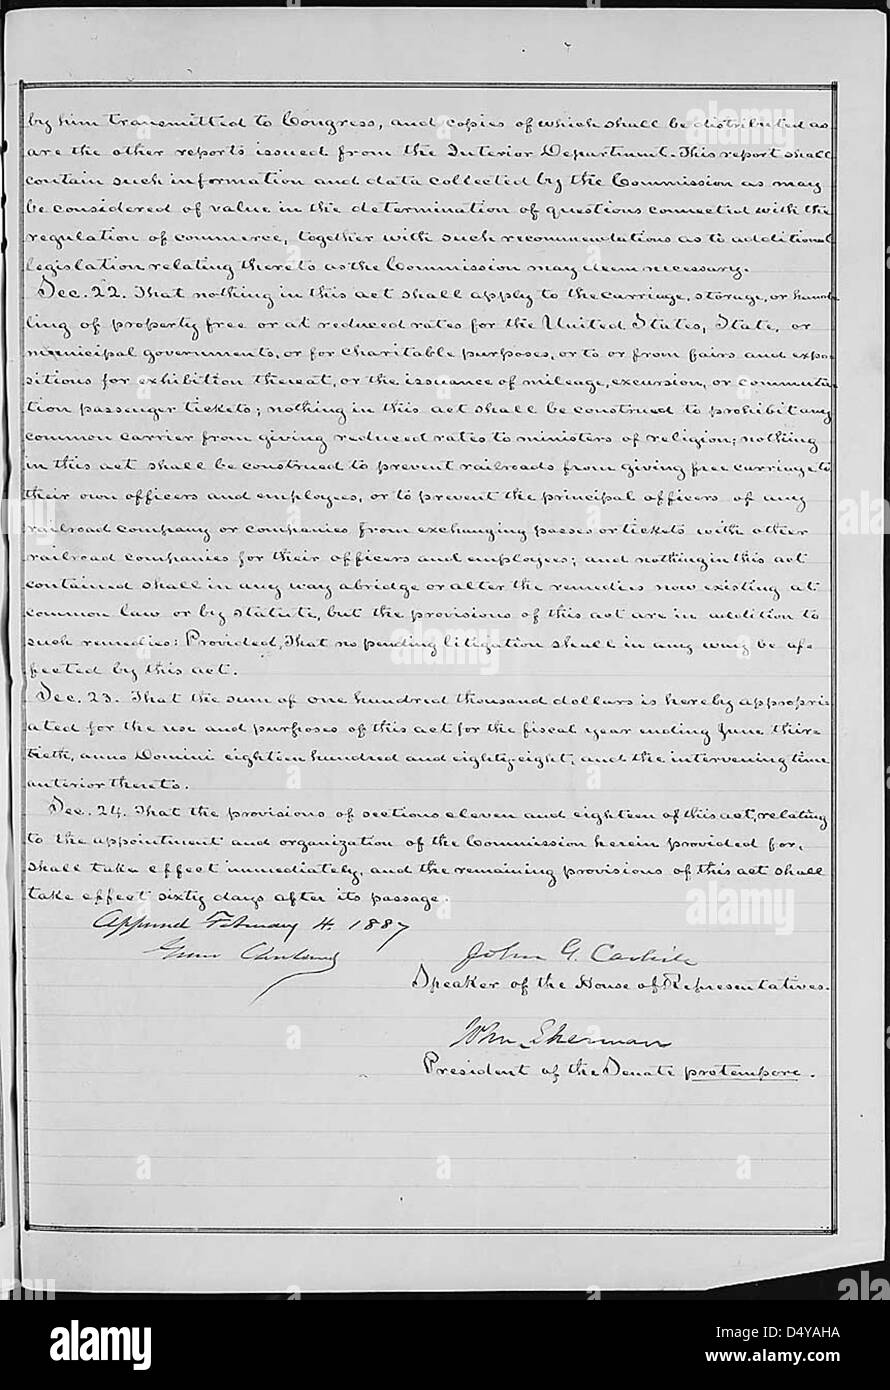 by him transmitted to Congress, and copies of which shall be distributed as
are the other reports issued from the Interior Department. This report shall
contain such information and data collected by the Commission as may
be considered of value in the determination of questions connected with the
regulation of commerce, together with such recommendations as to additional
legislation relating thereto as the Commission may deem necessary.
Sec. 22. That nothing in this act shall apply to the carriage, storage, or hand-
ling of property free or at reduced rates for the United States, State, or
municipal governments, or for charitable purposes, or to or from fairs and expo-
sitions for exhibition thereat, or the issuance of mileage, excursion, or commuta-
tion passenger tickets; nothing in this act shall be construed to prohibit any
common carrier from giving reduced rates to ministers of religion; nothing
in this act shall be construed to prevent railroads from giving free carriage to
their own officers and employees, or to prevent the principal officers of any
railroad company or companies from exchanging passes or tickets with other
railroad companies for their officers and employees; and nothing in this act
contained shall in any way abridge or alter the remedies now existing at
common law or by statute, but the provisions of this act are in addition to
such remedies: Provided, That no pending litigation shall in any way be af-
fected by this act.
Sec. 23. That the sum of one hundred thousand dollars is hereby appropri-
ated for the use and purposes of this act for the fiscal year ending June thir-
tieth, anno Domini eighteen hundred and eighty-eight, and the intervening time
anterior thereto.
Sec. 24. That the provisions of sections eleven and eighteen of this act, relating
to the appointment and organization of the Commission herein provided for,
shall take effect immediately, and the remaining provisions of this act shall
take effect sixty days after its passage.
Approved February 4, 1887
Grover Cleveland
John G. Carlisle
Speaker of the House of Representatives.
Jno. Sherman
President of the Senate pro tempore.
alamy
Image ID: D4YAHA
www.alamy.com